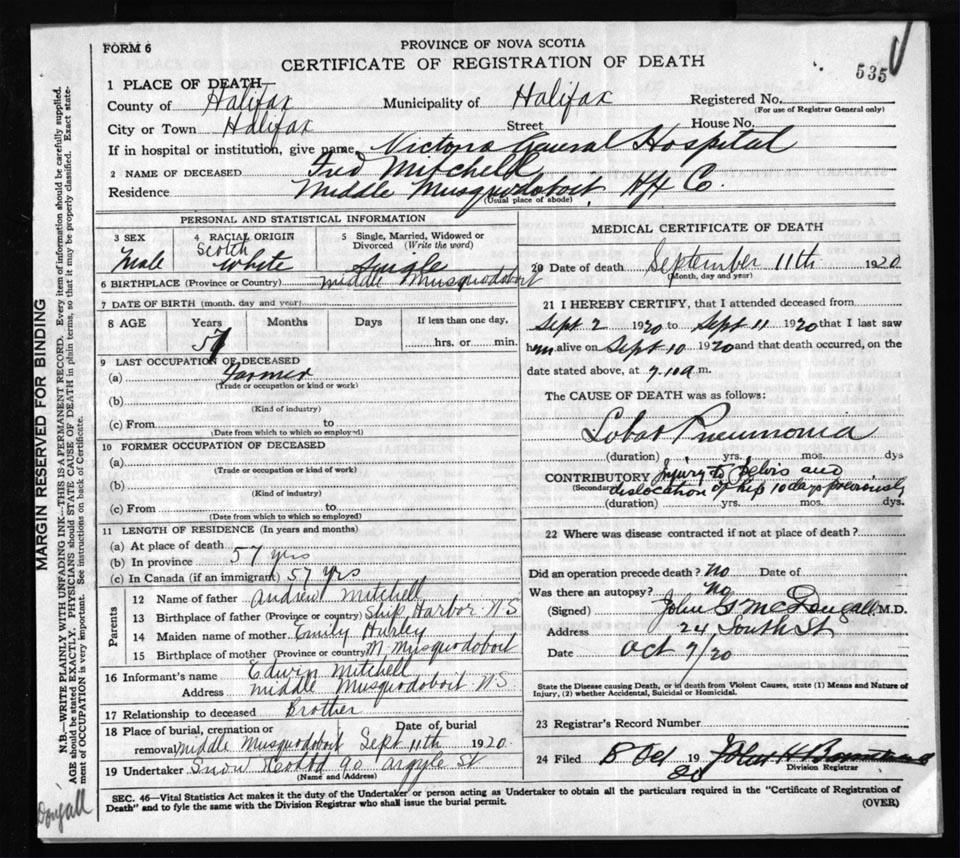 FORM 6
PROVINCE OF NOVA SCOTIA
CERTIFICATE OF REGISTRATION OF DEATH
535
1 PLACE OF DEATH—
County of Halifax Municipality of Halifax Registered No.
(For use of Registrar General only)
City or Town Halifax Street House No.
If in hospital or institution, give name, Victoria General Hospital
2 NAME OF DECEASED Fred Mitchell
Residence Middle Musquodoboit Hfx Co.
(Usual place of abode)
PERSONAL AND STATISTICAL INFORMATION
3 SEX 4 RACIAL ORIGIN 5 Single, Married, Widowed or Divorced (Write the word)
Male Scotch White Single
6 BIRTHPLACE (Province or Country) Middle Musquodoboit
7 DATE OF BIRTH (month, day and year)
8 AGE Years Months Days If less than one day,
57 hrs. or min.
9 LAST OCCUPATION OF DECEASED
(a) Farmer
(Trade or occupation or kind or work)
(b)
(Kind of industry)
(c) From to
(Date from which to which so employed)
10 FORMER OCCUPATION OF DECEASED
(a)
(Trade or occupation or kind of work)
(b)
(Kind of industry)
(c) From to
(Date from which to which so employed)
11 LENGTH OF RESIDENCE (In years and months)
(a) At place of death
(b) In province 57 yrs
(c) In Canada (if an immigrant) 57 yrs
Parents
12 Name of father Andrew Mitchell
13 Birthplace of father (Province or country) Ship Harbor NS
14 Maiden name of mother Emily Hurley
15 Birthplace of mother (Province or country) M. Musquodoboit
16 Informant's name Edwin Mitchell
Address Middle Musquodoboit NS
17 Relationship to deceased Brother
18 Place of burial, cremation or removal Middle Musquodoboit Date of, burial Sept 11th 1920
19 Undertaker Snow & Co Ltd 90 Argyle St
(Name and Address)
MEDICAL CERTIFICATE OF DEATH
20 Date of death September 11th 1920
(Month, day and year)
21 I HEREBY CERTIFY, that I attended deceased from
Sept 2 1920 to Sept 11 1920 that I last saw
him alive on Sept 10 1920 and that death occurred, on the
date stated above, at 7.10 a.m.
The CAUSE OF DEATH was as follows:
Lobar Pneumonia
(duration) yrs. mos. dys
CONTRIBUTORY Injury to Pelvis and
(Secondary) dislocation of hip 10 days previously
(duration) yrs. mos. dys.
22 Where was disease contracted if not at place of death?
Did an operation precede death? No Date of
Was there an autopsy? No
(Signed) John G McDougall M.D.
Address 24 South St
Date Oct 7/20
State the Disease causing Death, or in death from Violent Causes, state (1) Means and Nature of
Injury, (2) whether Accidental, Suicidal or Homicidal.
23 Registrar's Record Number
24 Filed 8 Oct 1920 John H
Division Registrar
SEC. 46—Vital Statistics Act makes it the duty of the Undertaker or person acting as Undertaker to obtain all the particulars required in the "Certificate of Registration of
Death" and to fyle the same with the Division Registrar who shall issue the burial permit.
(OVER)
MARGIN RESERVED FOR BINDING
N.B.—WRITE PLAINLY WITH UNFADING INK—THIS IS A PERMANENT RECORD. Every item of information should be carefully supplied.
AGE should be stated EXACTLY. PHYSICIANS should STATE CAUSE OF DEATH in plain terms, so that it may be properly classified. Exact state-
ment of OCCUPATION is very important. See instructions on back of Certificate.
Dougall